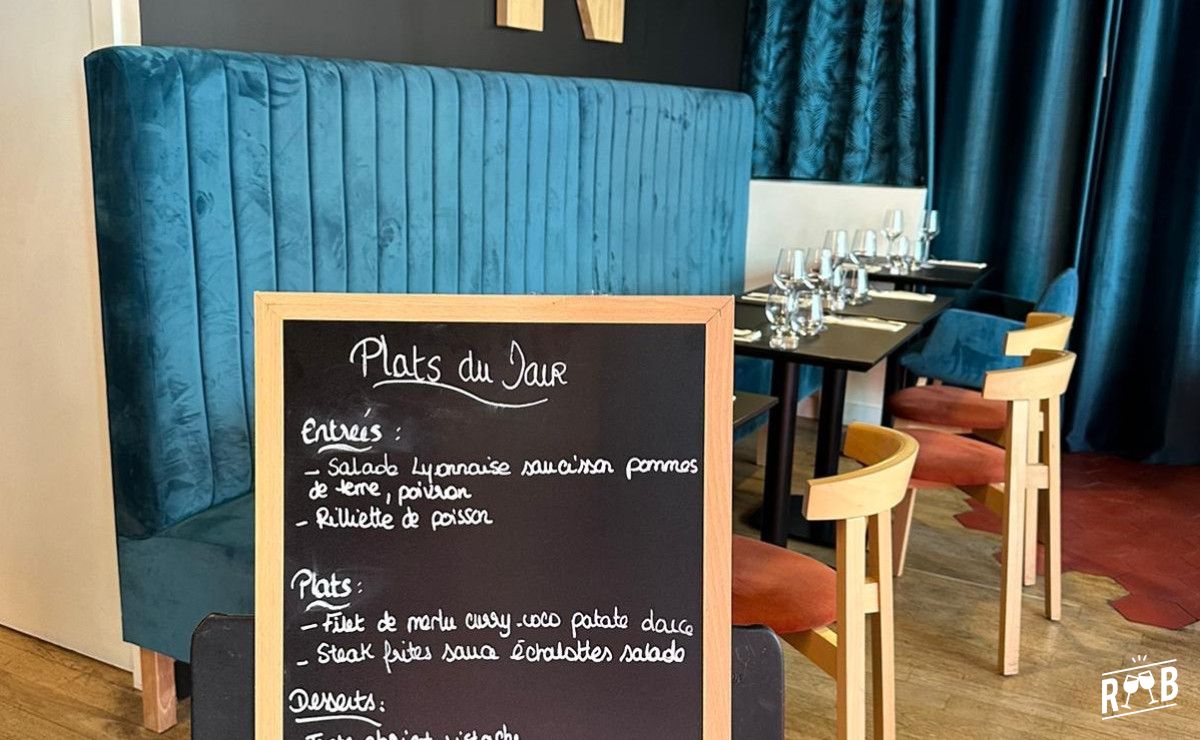 Plats du Jour
Entrées :
- Salade Lyonnaise saucisson pommes
de terre, poivron
- Rilliette de poisson
Plats :
- Filet de merlu curry-coco patate douce
- Steak frites sauce échalottes salade
Desserts :
abricot pistache
R B